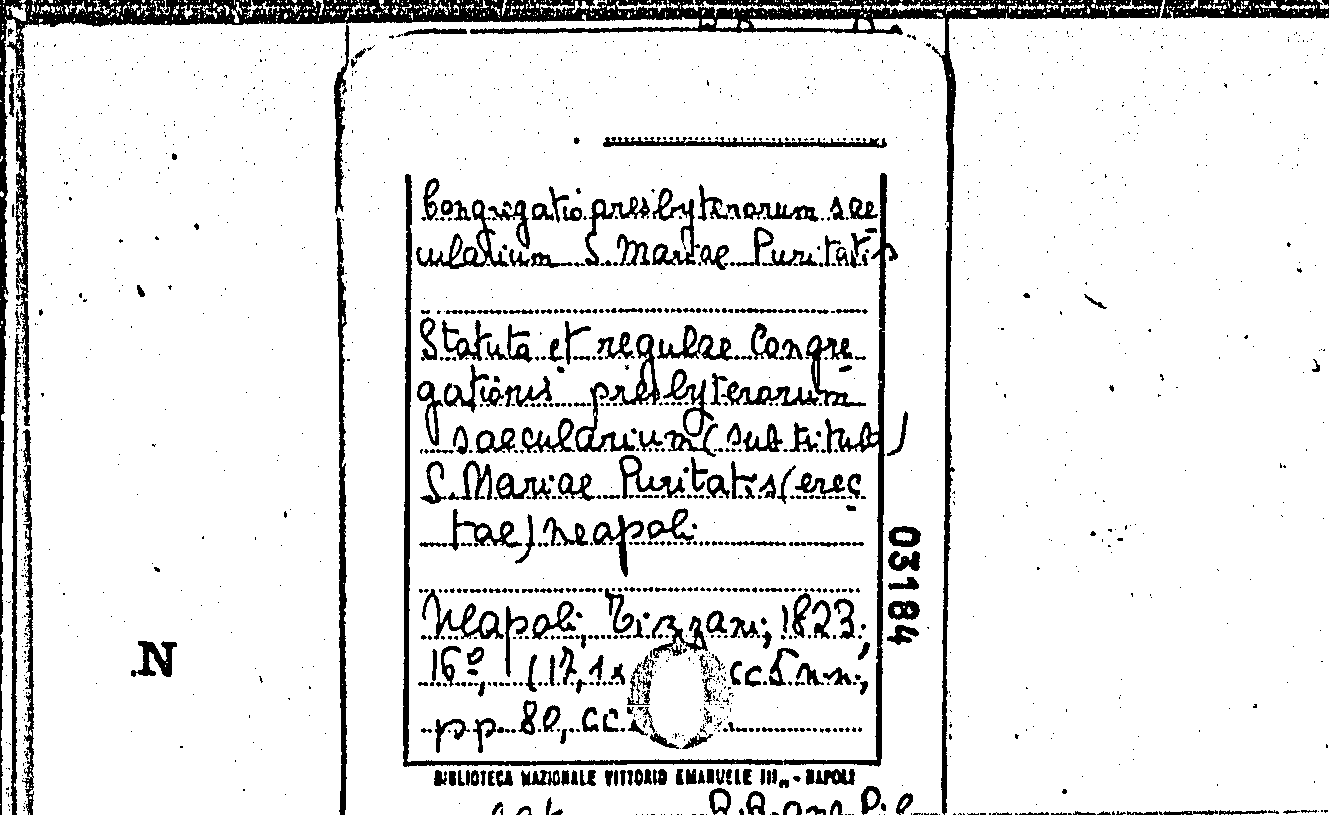 Congregatio presbyterorum sae
cularium S. Mariae Puritatis
Statuta et regulae Congre
gationis presbyterorum
saecularium (sub titulo)
S. Mariae Puritatis (erec
tae) Neapoli
Neapoli, Tizzani, 1823;
16º, (17,1x cc 5 n.n.,
pp. 80, cc
BIBLIOTECA NAZIONALE VITTORIO EMANUELE III„ - NAPOLI
03184
N